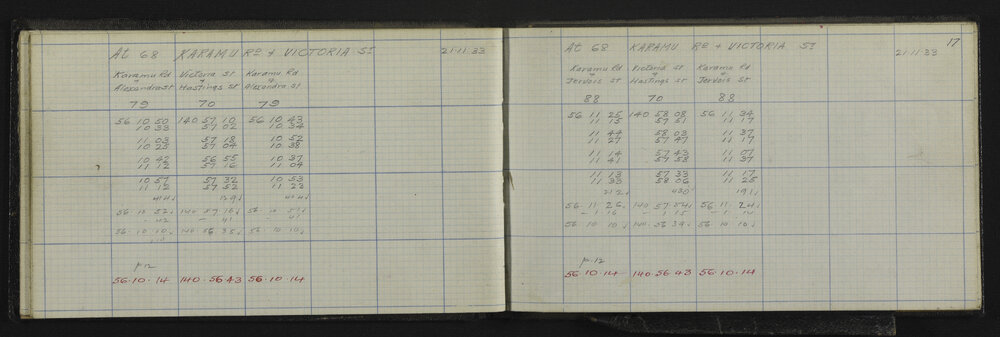 At 68 KARAMU Rd + VICTORIA St 21·11·33
Karamu Rd Victoria St Karamu Rd
& & &
Alexandra St Hastings St Alexandra St
79 70 79
56 10 50 140 57 10 56 10 43
10 33 57 02 10 34
11 03 57 18 10 52
10 25 57 04 10 38
10 42 56 55 10 37
11 12 57 16 11 04
10 57 57 32 10 53
11 12 57 52 11 23
414 129 404
56 10 52 140 57 16 56 10 51
- 42 - 41 - 41
56 10 10 140 56 35 56 10 10
p 12
56·10·14 140·56·43 56·10·14
17
At 68 KARAMU Rd + VICTORIA St 21·11·33
Karamu Rd Victoria St Karamu Rd
& & &
Jervois St Hastings St Jervois St
88 70 88
56 11 25 140 58 08 56 11 34
11 15 57 51 11 17
11 44 58 03 11 37
11 27 57 47 11 17
11 14 57 43 11 07
11 41 57 58 11 37
11 13 57 33 11 17
11 33 58 06 11 25
212 430 191
56 11 26 140 57 54 56 11 24
- 1 16 - 1 15 - 1 14
56 10 10 140 56 39 56 10 10
p. 12
56·10·14 140·56·43 56·10·14